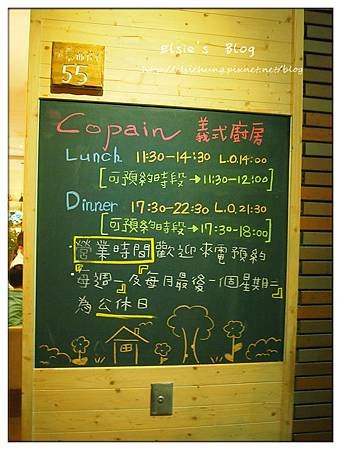 Elsie's Blog
http://elsiechung.pixnet.net/blog
55
Copain 義式廚房
Lunch 11:30-14:30 L.O.14:00
[可預約時段→11:30-12:00]
Dinner 17:30-22:30 L.O.21:30
[可預約時段→17:30-18:00]
·營業時間歡迎來電預約
·每週『一』及每月最後一個星期『二』
為公休日